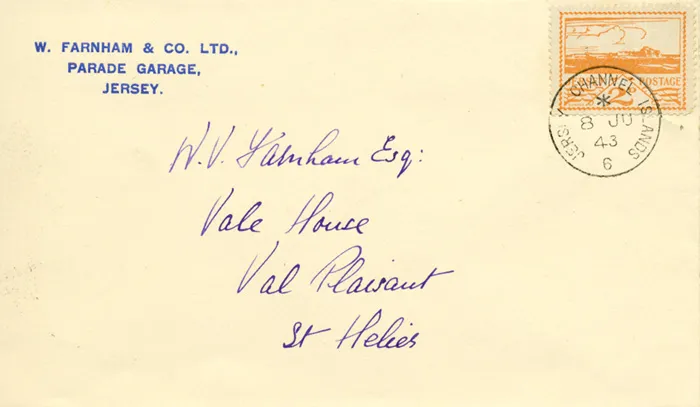 W. FARNHAM & CO. LTD.,
PARADE GARAGE,
JERSEY.
POSTAGE
2
JERSEY CHANNEL ISLANDS
8 JU
43
6
W. V. Farnham Esq:
Vale House
Val Plaisant
St Helier